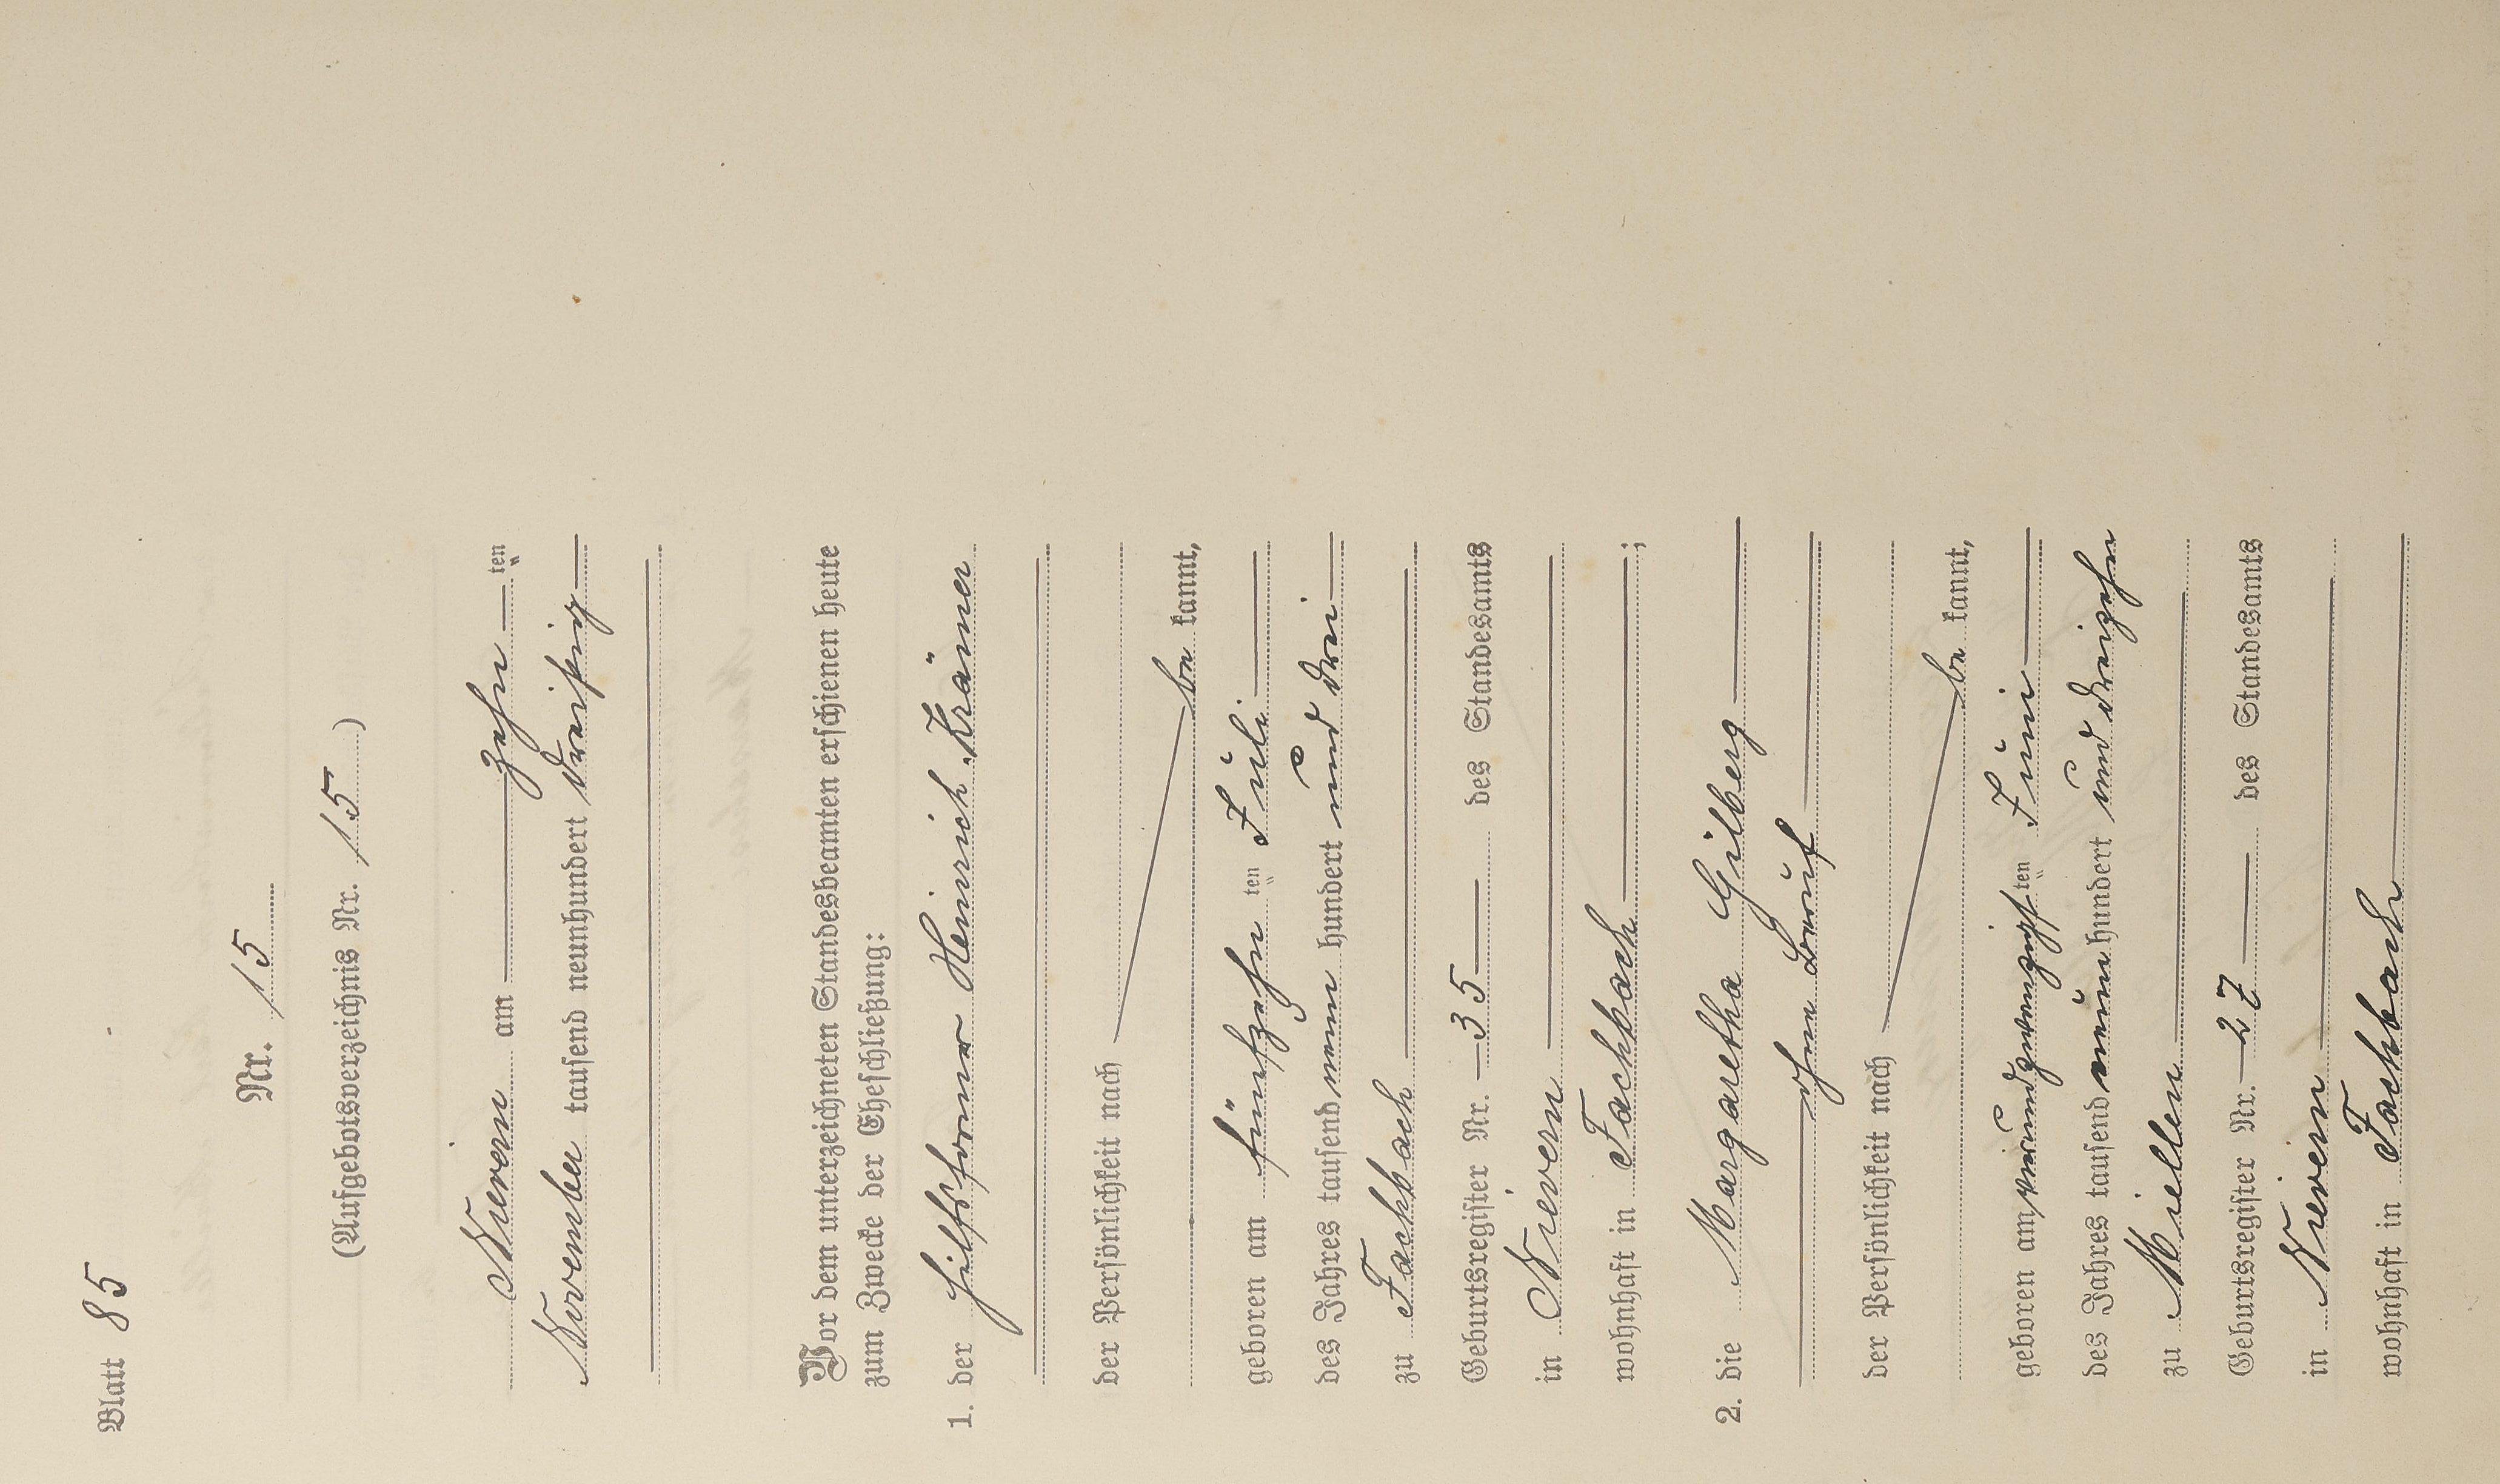 Blatt 85
Nr. 15
(Aufgebotsverzeichnis Nr. 15)
Nievern am zehn ten
November tausend neunhundert dreißig
Vor dem unterzeichneten Standesbeamten erschienen heute
zum Zwecke der Eheschließung:
1. der Hilfsformer Heinrich Kräner
der Persönlichkeit nach
be kannt,
geboren am fünfzehn ten Juli
des Jahres tausend neun hundert und drei
zu Fachbach
Geburtsregister Nr. 35 des Standesamts
in Nievern
wohnhaft in Fachbach ;
2. die Margaretha Gilberg
ohne Beruf
der Persönlichkeit nach
be kannt,
geboren am vierundzwanzigsten Juni
des Jahres tausend neun hundert und dreizehn
zu Miellen
Geburtsregister Nr. 27 des Standesamts
in Nievern
wohnhaft in Fachbach